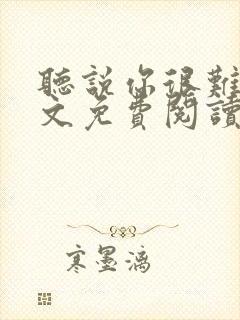 聽說你很難
文免費閱讀
寒墨漓